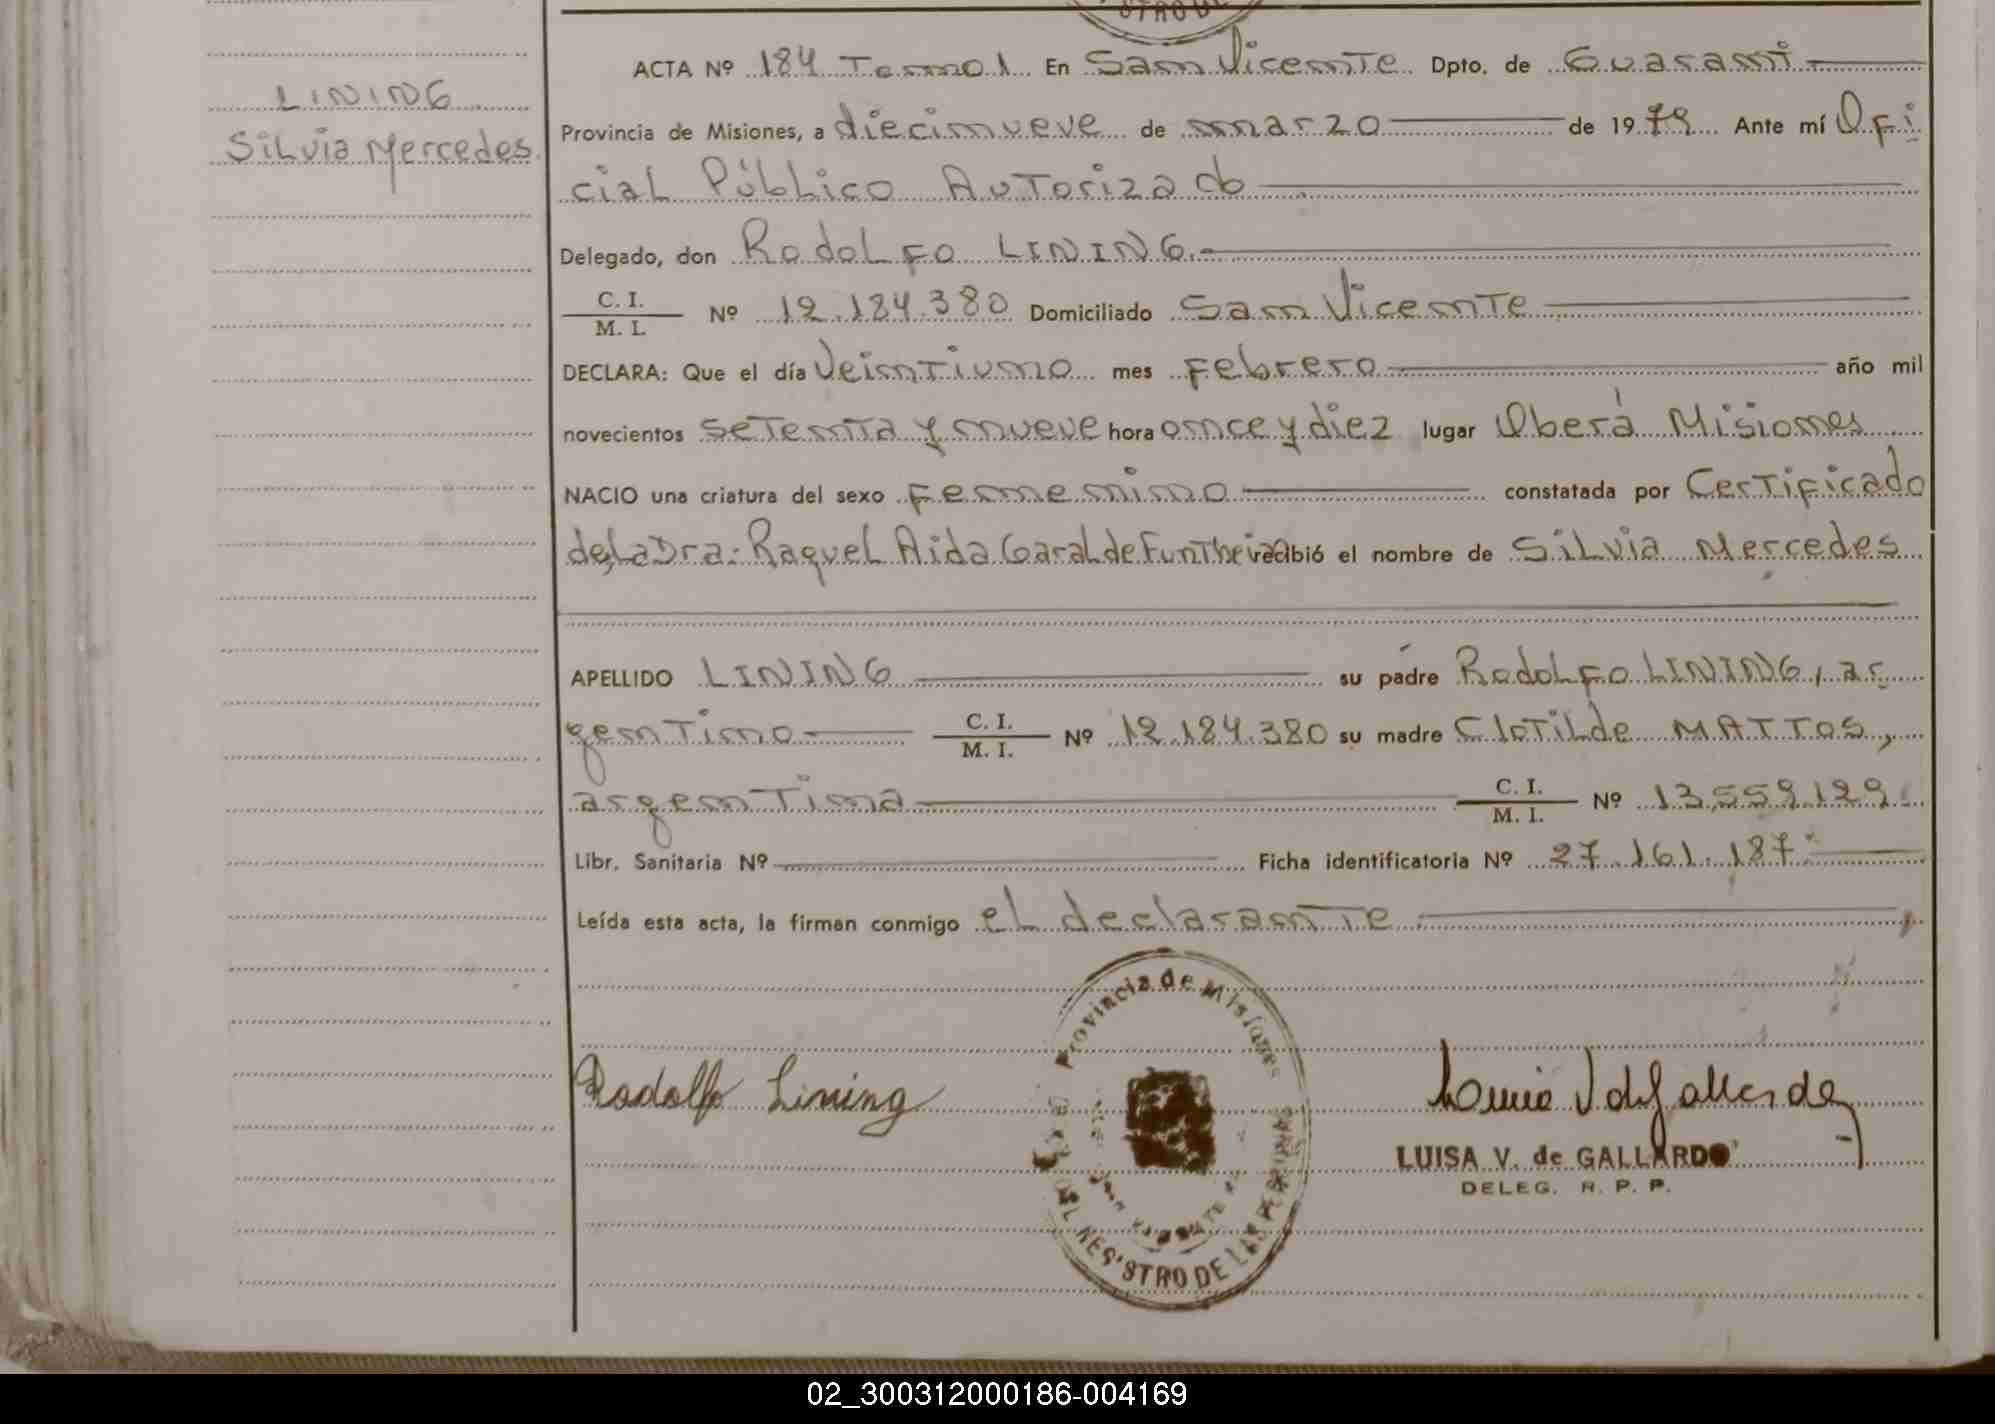 LINING
Silvia Mercedes
ACTA Nº 184 Tomo 1 En San Vicente Dpto. de Guaraní
Provincia de Misiones, a diecinueve de marzo de 1979 Ante mí Ofi
cial Público Autorizado
Delegado, don Rodolfo LINING.
C. I.
M. I. Nº 12.184.380 Domiciliado San Vicente
DECLARA: Que el día Veintiuno mes Febrero año mil
novecientos setenta y nueve hora once y diez lugar Oberá Misiones
NACIO una criatura del sexo Femenino constatada por Certificado
de la Dra: Raquel Aida Garal de recibió el nombre de Silvia Mercedes
APELLIDO LINING su padre Rodolfo LINING, ar
gentino C. I.
M. I. Nº 12.184.380 su madre Clotilde MATTOS,
argentina C. I.
M. I. Nº 13.559.129
Libr. Sanitaria Nº Ficha identificatoria Nº 27.161.187
Leída esta acta, la firman conmigo el declarante
Provincia de Misiones
REGISTRO DE LAS
Rodolfo Lining
LUISA V. de GALLARDO
DELEG. R. P. P.
02_300312000186-004169